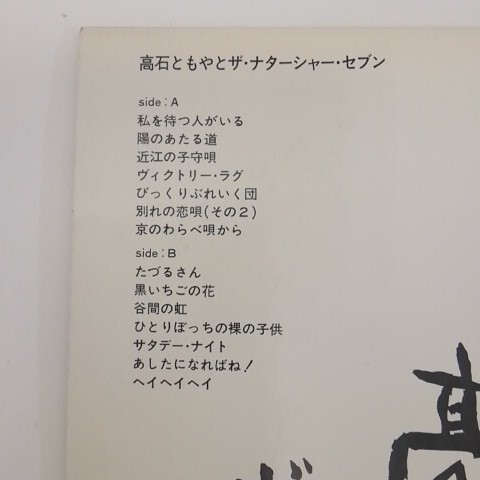 高石ともやとザ・ナターシャー・セブン
side：A
私を待つ人がいる
陽のあたる道
近江の子守唄
ヴィクトリー・ラグ
びっくりぶれいく団
別れの恋唄（その2）
京のわらべ唄から
side：B
たづるさん
黒いちごの花
谷間の虹
ひとりぼっちの裸の子供
サタデー・ナイト
あしたになればね！
ヘイヘイヘイ
高